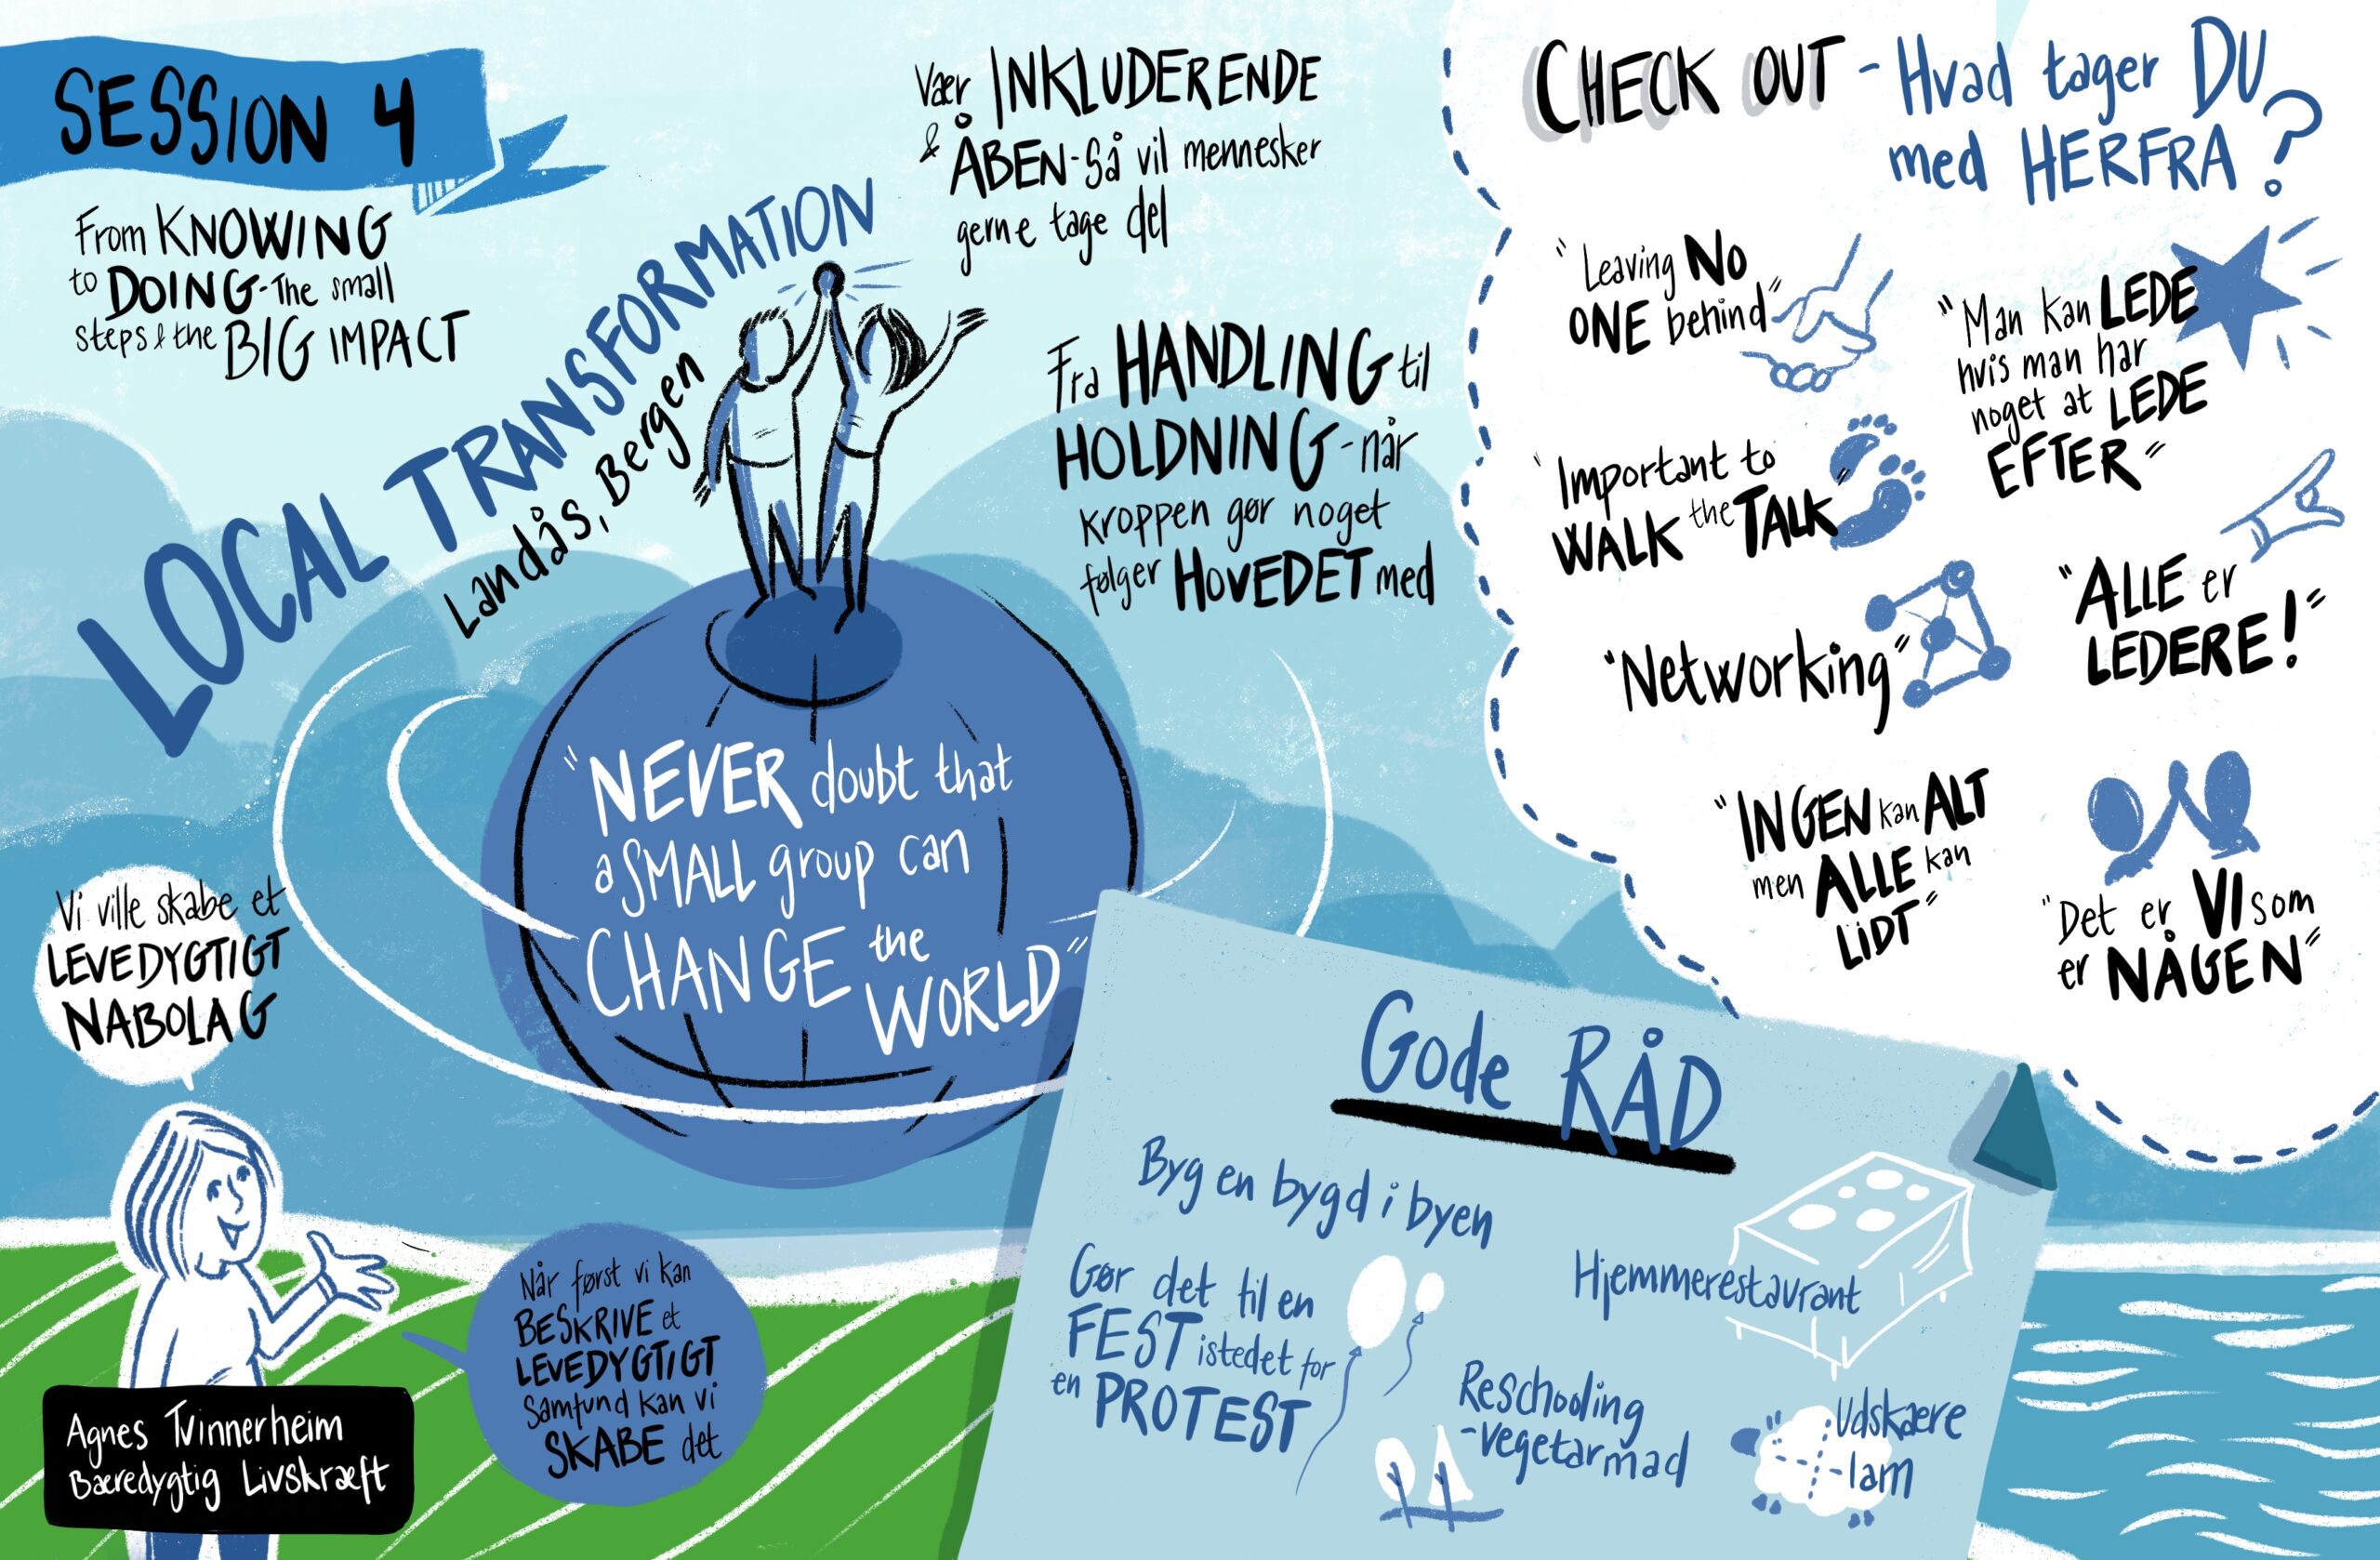 SESSION 4
From KNOWING
to DOING - The small
steps & the BIG IMPACT
LOCAL TRANSFORMATION
Landås, Bergen
Vær INKLUDERENDE
& ÅBEN - Så vil mennesker
gerne tage del
Fra HANDLING til
HOLDNING - når
kroppen gør noget
følger HOVEDET med
"NEVER doubt that
a SMALL group can
CHANGE the
WORLD"
Vi ville skabe et
LEVEDYGTIGT
NABOLAG
Agnes Tvinnerheim
Bæredygtig Livskræft
Når først vi kan
BESKRIVE et
LEVEDYGTIGT
samfund kan vi
SKABE det
CHECK OUT - Hvad tager DU
med HERFRA?
"Leaving NO
ONE behind"
"Man kan LEDE
hvis man har
noget at LEDE
EFTER"
"Important to
WALK the TALK"
"Networking"
"ALLE er
LEDERE!"
"INGEN kan ALT
men ALLE kan
LIDT"
"Det er VI som
er NÅGEN"
Gode RÅD
Byg en bygd i byen
Gør det til en
FEST istedet for
en PROTEST
Hjemmerestaurant
Reschooling
- vegetarmad
Udskære
- lam